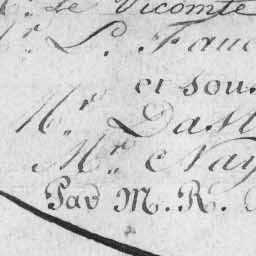 Le Vicomte
Mr. L. Fauc
et sous
Mr. Dast
Mr. Nay
Par M. R.